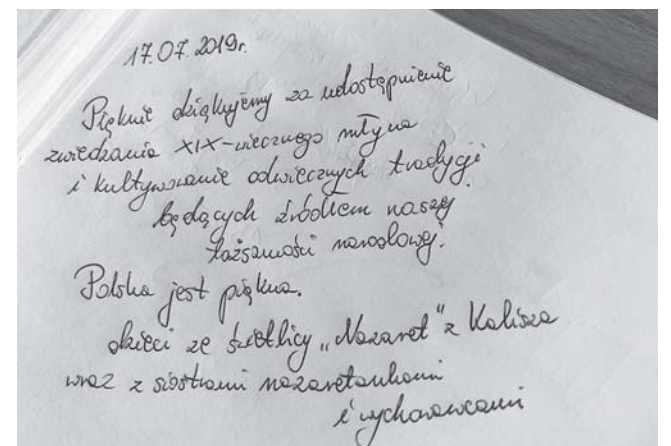 17.07.2019r.
Pięknie dziękujemy za udostępnienie
zwiedzania XIX-wiecznego młyna
i kultywowanie odwiecznych tradycji
będących źródłem naszej
tożsamości narodowej.
Polska jest piękna.
dzieci ze świetlicy „Nazaret” z Kalisza
wraz z siostrami nazaretankami
i wychowawcami